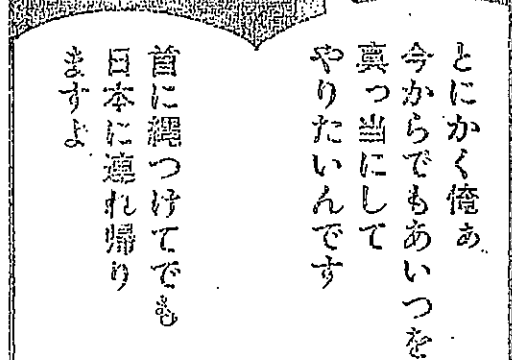 とにかく俺ぁ
今からでもあいつを
真っ当にして
やりたいんです
首に縄つけてでも
日本に連れ帰り
ますよ